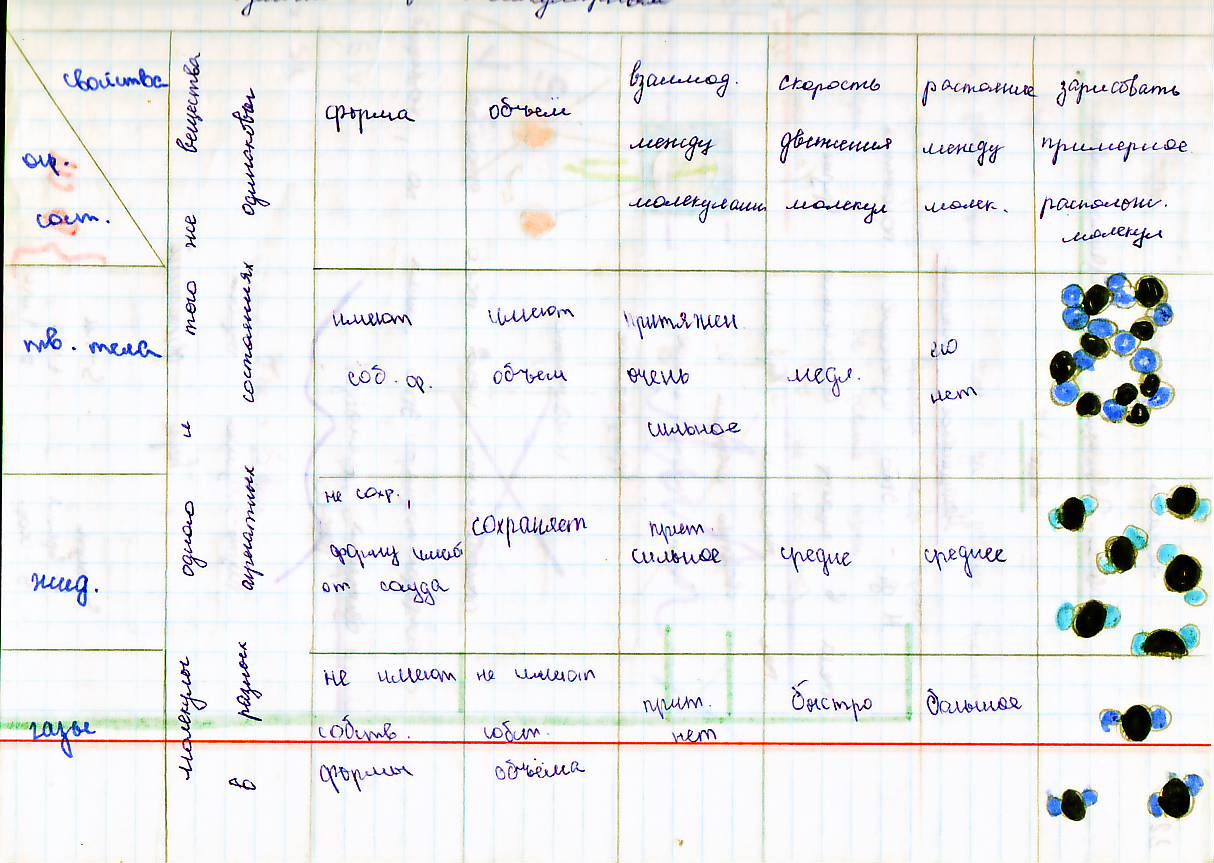 свойства
агр.
сост.
молекулы одного и того же вещества
в разных агрегатных состояниях одинаковы
форма
объём
взаимод.
между
молекулами
скорость
движения
молекул
растояние
между
молек.
зарисовать
примерное
располож.
молекул
тв. тела
имеют
соб. ф.
имеют
объем
притяжен.
очень
сильное
медл.
его
нет
жид.
не сохр.,
форму имеют
от сосуда
сохраняет
прит.
сильное
средне
среднее
газы
не имеют
собств.
формы
не имеют
собст.
объёма
прит.
нет
быстро
большое